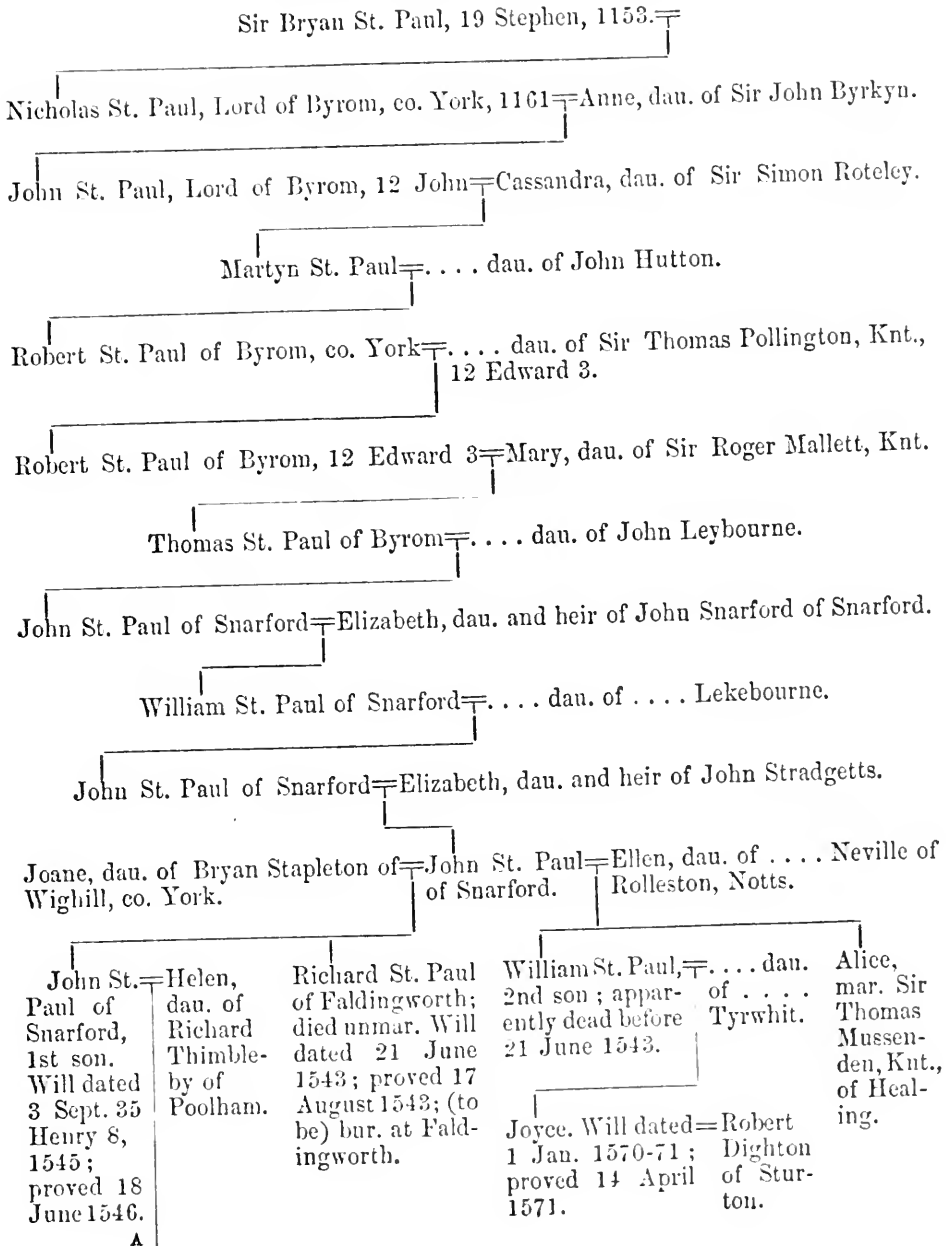 Sir Bryan St. Paul, 19 Stephen, 1153.
Nicholas St. Paul, Lord of Byrom, co. York, 1161=Anne, dau. of Sir John Byrkyn.
John St. Paul, Lord of Byrom, 12 John=Cassandra, dau. of Sir Simon Roteley.
Martyn St. Paul=. . . . dau. of John Hutton.
Robert St. Paul of Byrom, co. York=. . . . dau. of Sir Thomas Pollington, Knt.,
12 Edward 3.
Robert St. Paul of Byrom, 12 Edward 3=Mary, dau. of Sir Roger Mallett, Knt.
Thomas St. Paul of Byrom=. . . . dau. of John Leybourne.
John St. Paul of Snarford=Elizabeth, dau. and heir of John Snarford of Snarford.
William St. Paul of Snarford=. . . . dau. of . . . . Lekebourne.
John St. Paul of Snarford=Elizabeth, dau. and heir of John Stradgetts.
Joane, dau. of Bryan Stapleton of=John St. Paul=Ellen, dau. of . . . . Neville of
Wighill, co. York. of Snarford. Rolleston, Notts.
John St.=
Paul of
Snarford,
1st son.
Will dated
3 Sept. 35
Henry 8,
1545;
proved 18
June 1546.
A
Helen,
dau. of
Richard
Thimble-
by of
Poolham.
Richard St. Paul
of Faldingworth;
died unmar. Will
dated 21 June
1543; proved 17
August 1543; (to
be) bur. at Fald-
ingworth.
William St. Paul,=
2nd son; appar-
ently dead before
21 June 1543.
. . . . dau.
of . . . .
Tyrwhit.
Joyce. Will dated=
1 Jan. 1570-71;
proved 14 April
1571.
Robert
Dighton
of Stur-
ton.
Alice,
mar. Sir
Thomas
Mussen-
den, Knt.,
of Heal-
ing.